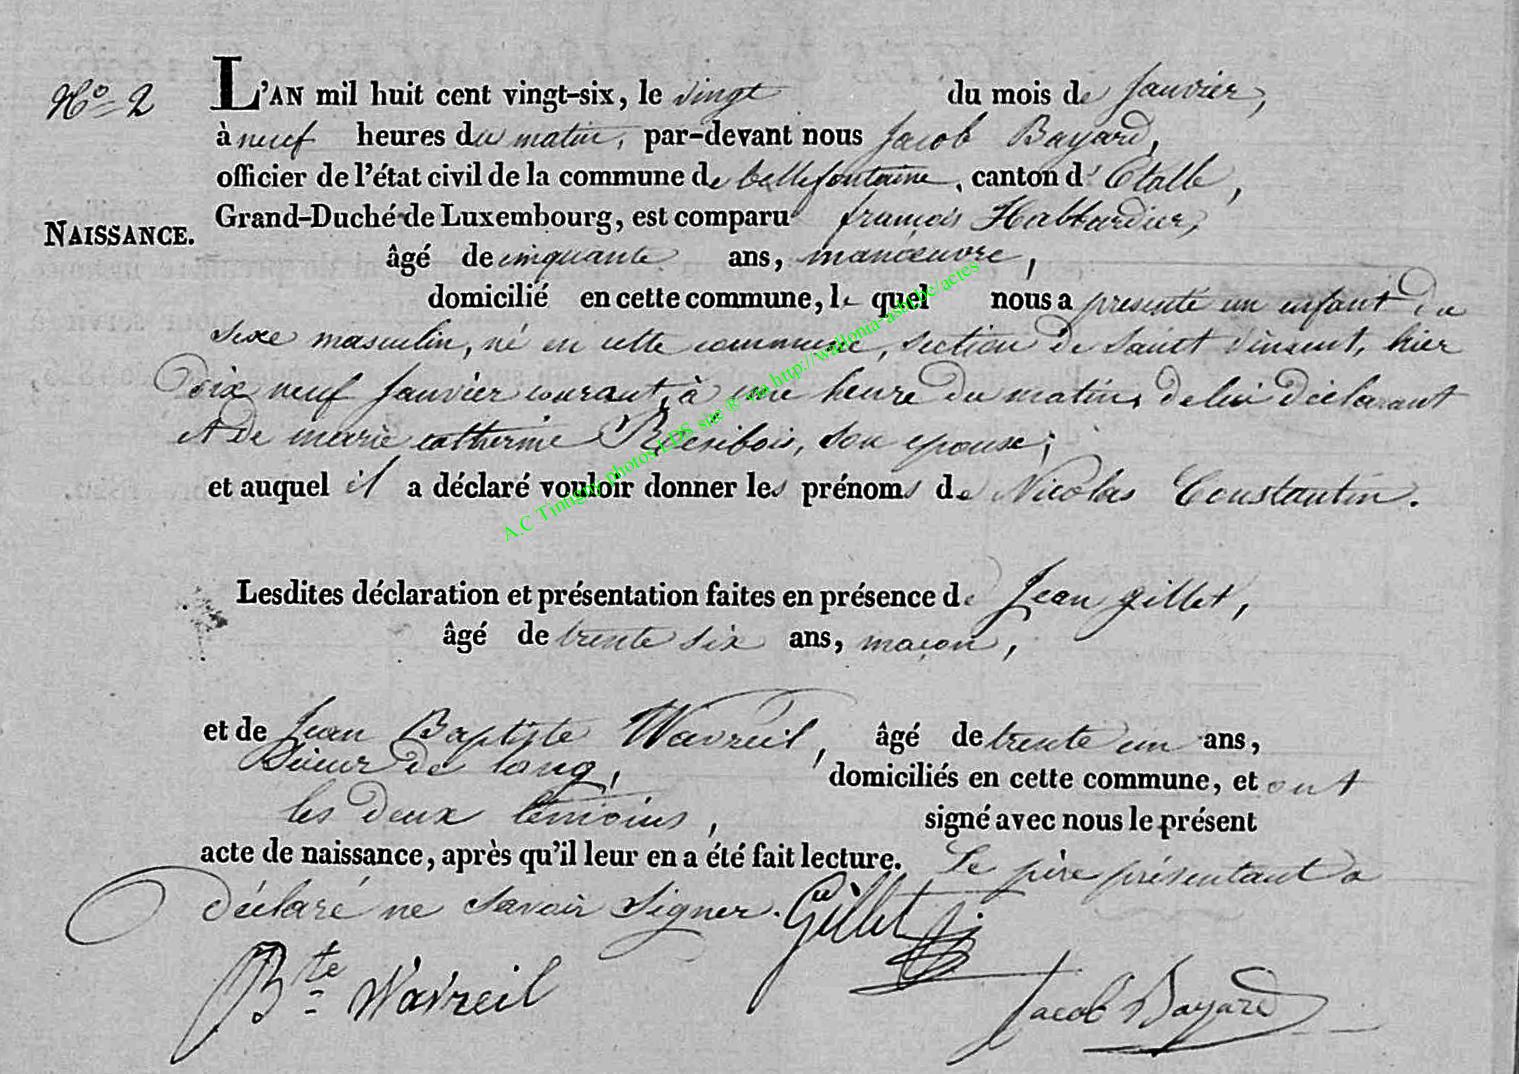 N° 2
L'AN mil huit cent vingt-six, le vingt du mois de Janvier,
à neuf heures du matin, par-devant nous Jacob Bayard,
officier de l'état civil de la commune de bellefontaine, canton d'Etalle,
NAISSANCE.
Grand-Duché de Luxembourg, est comparu françois
âgé de cinquante ans, manœuvre,
domicilié en cette commune, le quel nous a présenté un enfant du
sexe masculin, né en cette commune, section de Saint Vincent, hier
Dix neuf Janvier courant, à une heure du matin, de lui déclarant
et de marie catherine son epouse;
et auquel il a déclaré vouloir donner les prénoms de Nicolas Constantin.
A.C Tintigny photos LDS site ® via http://wallonia-asbl.be/actes
Lesdites déclaration et présentation faites en présence de Jean gillet,
âgé de trente six ans, maçon,
et de Jean Baptiste Wavreil, âgé de trente un ans,
Sieur de long, domiciliés en cette commune, et ont
les deux témoins, signé avec nous le présent
acte de naissance, après qu'il leur en a été fait lecture. Le père présentant a
déclaré ne savoir signer. Gillet
Bte Wavreil
Jacob Bayard